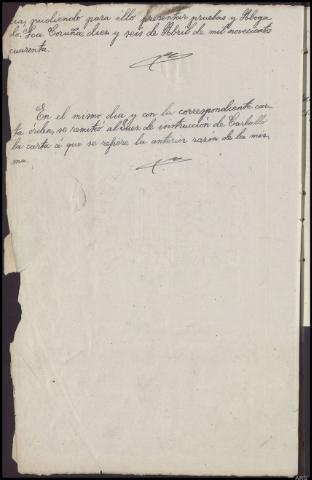 cia, pudiendo para ello presentar pruebas y Aboga-
do. La Coruña, diez y seis de Abril de mil novecientos
cuarenta.
En el mismo dia y con la correspondiente car-
ta órden, se remitió al Juez de instrucción de Carballo
la carta a que se refiere la anterior razón de la mes-
ma.